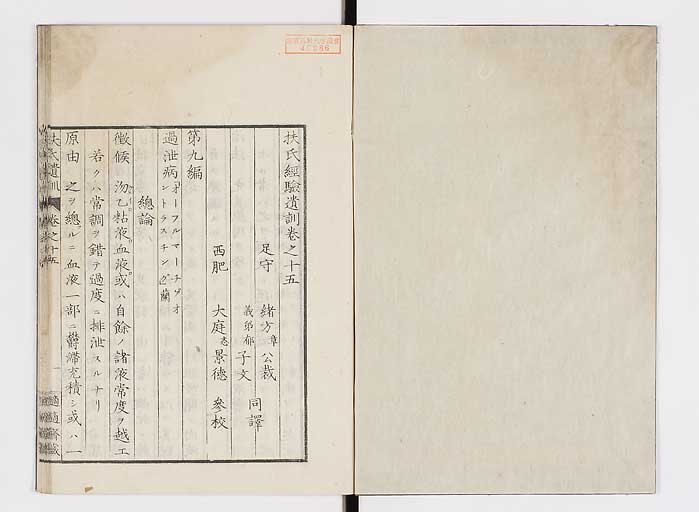 扶氏經驗遺訓卷之十五
足守　緒方章公裁
義弟郁子文　同譯
西肥　大庭忞景德　參校
第九編
過泄病
總論
徵候　泌乙粘液血液或ハ自餘ノ諸液常度ヲ越エ
若クハ常調ヲ錯テ過度ニ排泄スルナリ
原由　之ヲ總ルニ血液一部ニ鬱滯充積シ或ハ一
扶氏遺訓　卷之十五